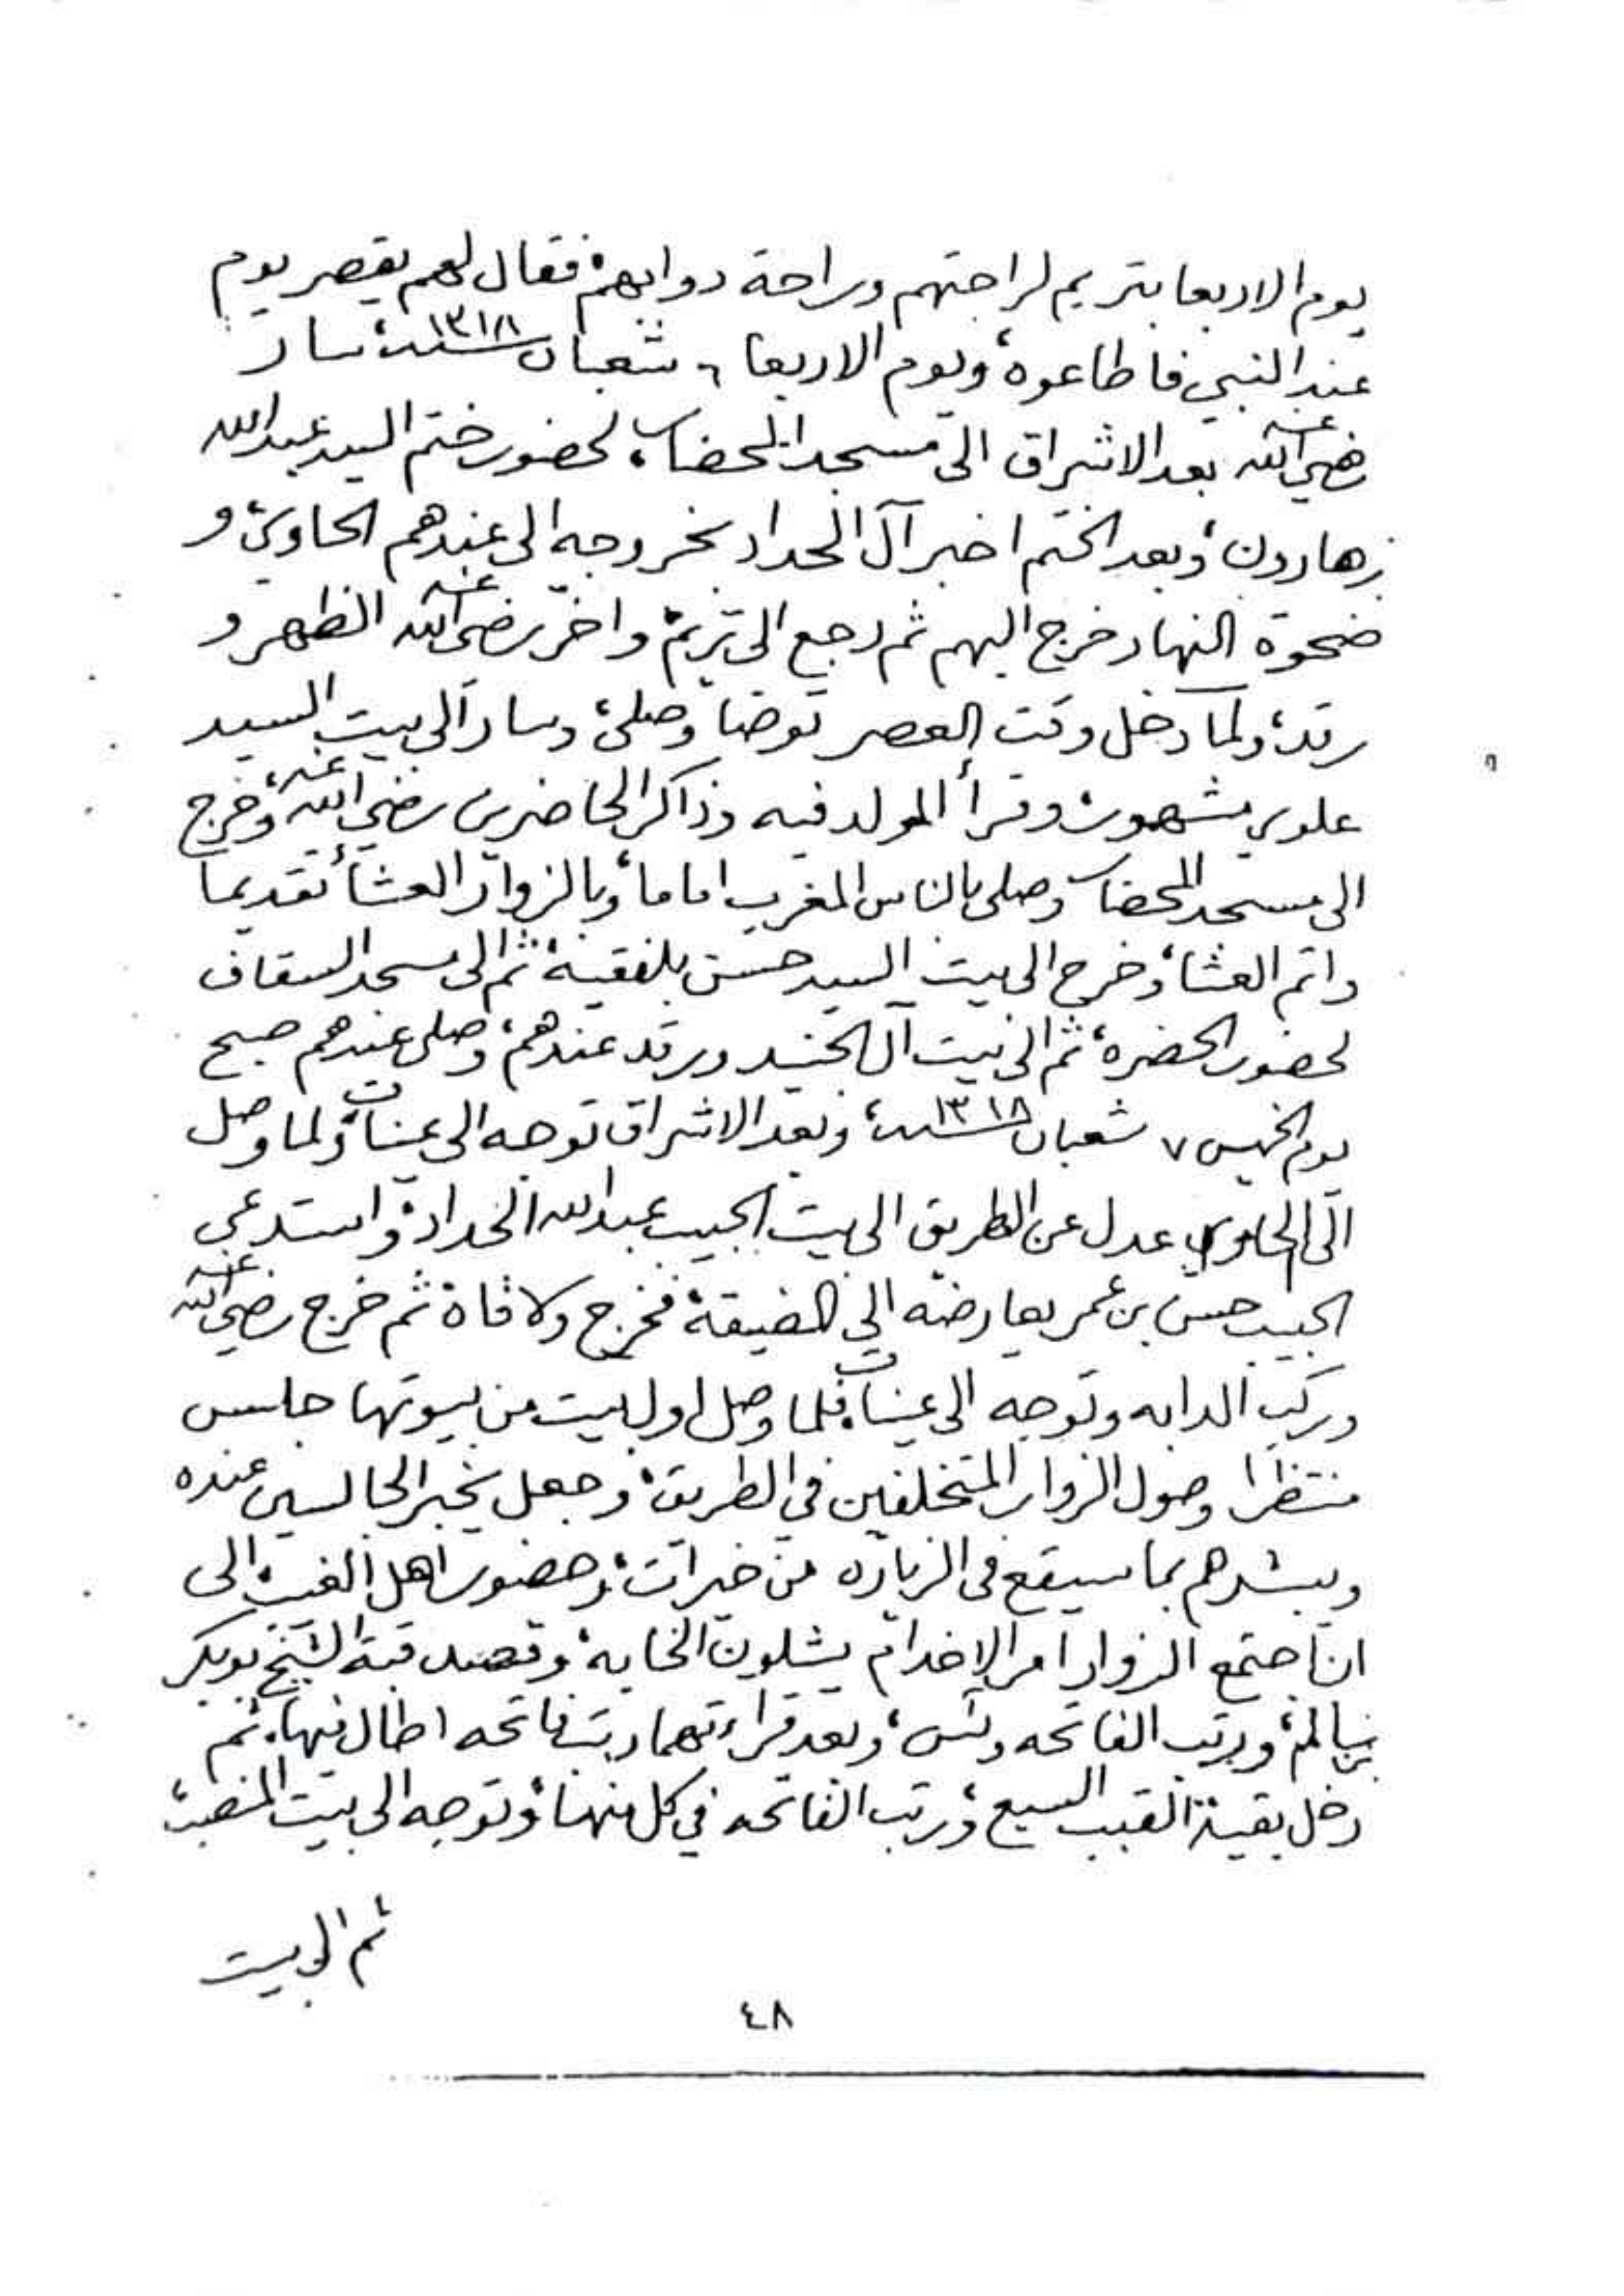 يوم الاربعا بتريم لراحتهم وراحة دوابهم، فقال لهم يقصر يوم
عند النبي فاطاعوه، ويوم الاربعا ٦ شعبان سنة ١٣١٨ سار
رضي الله عنه بعد الاشراق الى مسجد المحضار، لحضور ختم السيد عبدالله
بن هارون، وبعد الختم اخبر آل الحداد بخروجه الى عندهم الحاوي، و
ضحوة النهار خرج اليهم ثم رجع الى تريم، واخّر رضي الله عنه الظهر و
رقد، ولما دخل وقت العصر توضا وصلى، وسار الى بيت السيد
علوي مشهور، وقرأ المولد فيه وذاكر الحاضرين رضي الله عنه، وخرج
الى مسجد المحضار وصلى بالناس المغرب اماما، وبالزوار العشاء تقديما
واتم العشا، وخرج الى بيت السيد حسن بلفقيه، ثم الى مسجد السقاف
لحضور الحضره، ثم الى بيت آل الجنيد ورقد عندهم، وصلى عندهم صبح
يوم الخميس ٧ شعبان سنة ١٣١٨، وبعد الاشراق توجه الى عينات، ولما وصل
الى الحاوي عدل عن الطريق الى بيت الحبيب عبدالله الحداد، واستدعى
الحبيب حسن بن عمر يعارضه الى الضيقة، فخرج ولاقاه ثم خرج رضي الله عنه
وركب الدابه وتوجه الى عينات، فلما وصل اول بيت من بيوتها جلس
منتظرا وصول الزوار المتخلفين في الطريق، وجعل يخبر الجالسين عنده
ويبشرهم بما سيقع في الزياره من خيرات، وحضور اهل الغيب، الى
ان اجتمع الزوار امر الاخدام يشلون الخابه، وقصد قبة الشيخ بوبكر
بن سالم، ورتب الفاتحه ويس، وبعد قراءتهما رتب فاتحه اطال فيها، ثم
دخل بقية القبب السبع، ورتب الفاتحه في كل منها، وتوجه الى بيت المنصب،
ثم الى بيت
٤٨